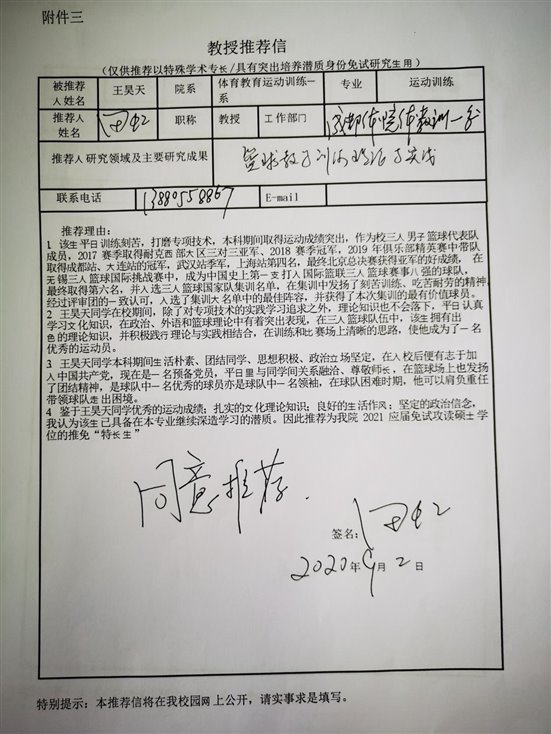 附件三
教授推荐信
（仅供推荐以特殊学术专长/具有突出培养潜质身份免试研究生用）
被推荐人姓名 王昊天 院系 体育教育运动训练一系 专业 运动训练
推荐人姓名 职称 教授 工作部门
推荐人研究领域及主要研究成果
联系电话 E-mail
推荐理由：
1 该生平日训练刻苦，打磨专项技术，本科期间取得运动成绩突出，作为校三人男子篮球代表队
成员，2017 赛季取得耐克西部大区三对三亚军、2018 赛季冠军，2019 年俱乐部精英赛中带队
取得成都站、大连站的冠军，武汉站季军，上海站第四名，最终北京总决赛获得亚军的好成绩，在
无锡三人篮球国际挑战赛中，成为中国史上第一支打入国际篮联三人篮球赛事八强的球队，
最终取得第六名，并入选三人篮球国家队集训名单，在集训中发扬了刻苦训练、吃苦耐劳的精神，
经过评审团的一致认可，入选了集训大名单中的最佳阵容，并获得了本次集训的最有价值球员。
2 王昊天同学在校期间，除了对专项技术的实践学习追求之外，理论知识也不会落下，平日认真
学习文化知识，在政治、外语和篮球理论中有着突出表现，在三人篮球队伍中，该生拥有出
色的理论知识，并积极践行理论与实践相结合，在训练和比赛场上清晰的思路，使他成为了一名
优秀的运动员。
3 王昊天同学本科期间生活朴素、团结同学、思想积极、政治立场坚定，在入校后便有志于加
入中国共产党，现在是一名预备党员，平日里与同学间关系融洽、尊敬师长，在篮球场上也发扬
了团结精神，是球队中一名优秀的球员亦是球队中一名领袖，在球队困难时期，他可以肩负重任
带领球队走出困境。
4 鉴于王昊天同学优秀的运动成绩；扎实的文化理论知识；良好的生活作风；坚定的政治信念，
我认为该生已具备在本专业继续深造学习的潜质。因此推荐为我院 2021 应届免试攻读硕士学
位的推免“特长生”
同意推荐.
签名：
2020 年 9 月 2 日
特别提示：本推荐信将在我校园网上公开，请实事求是填写。